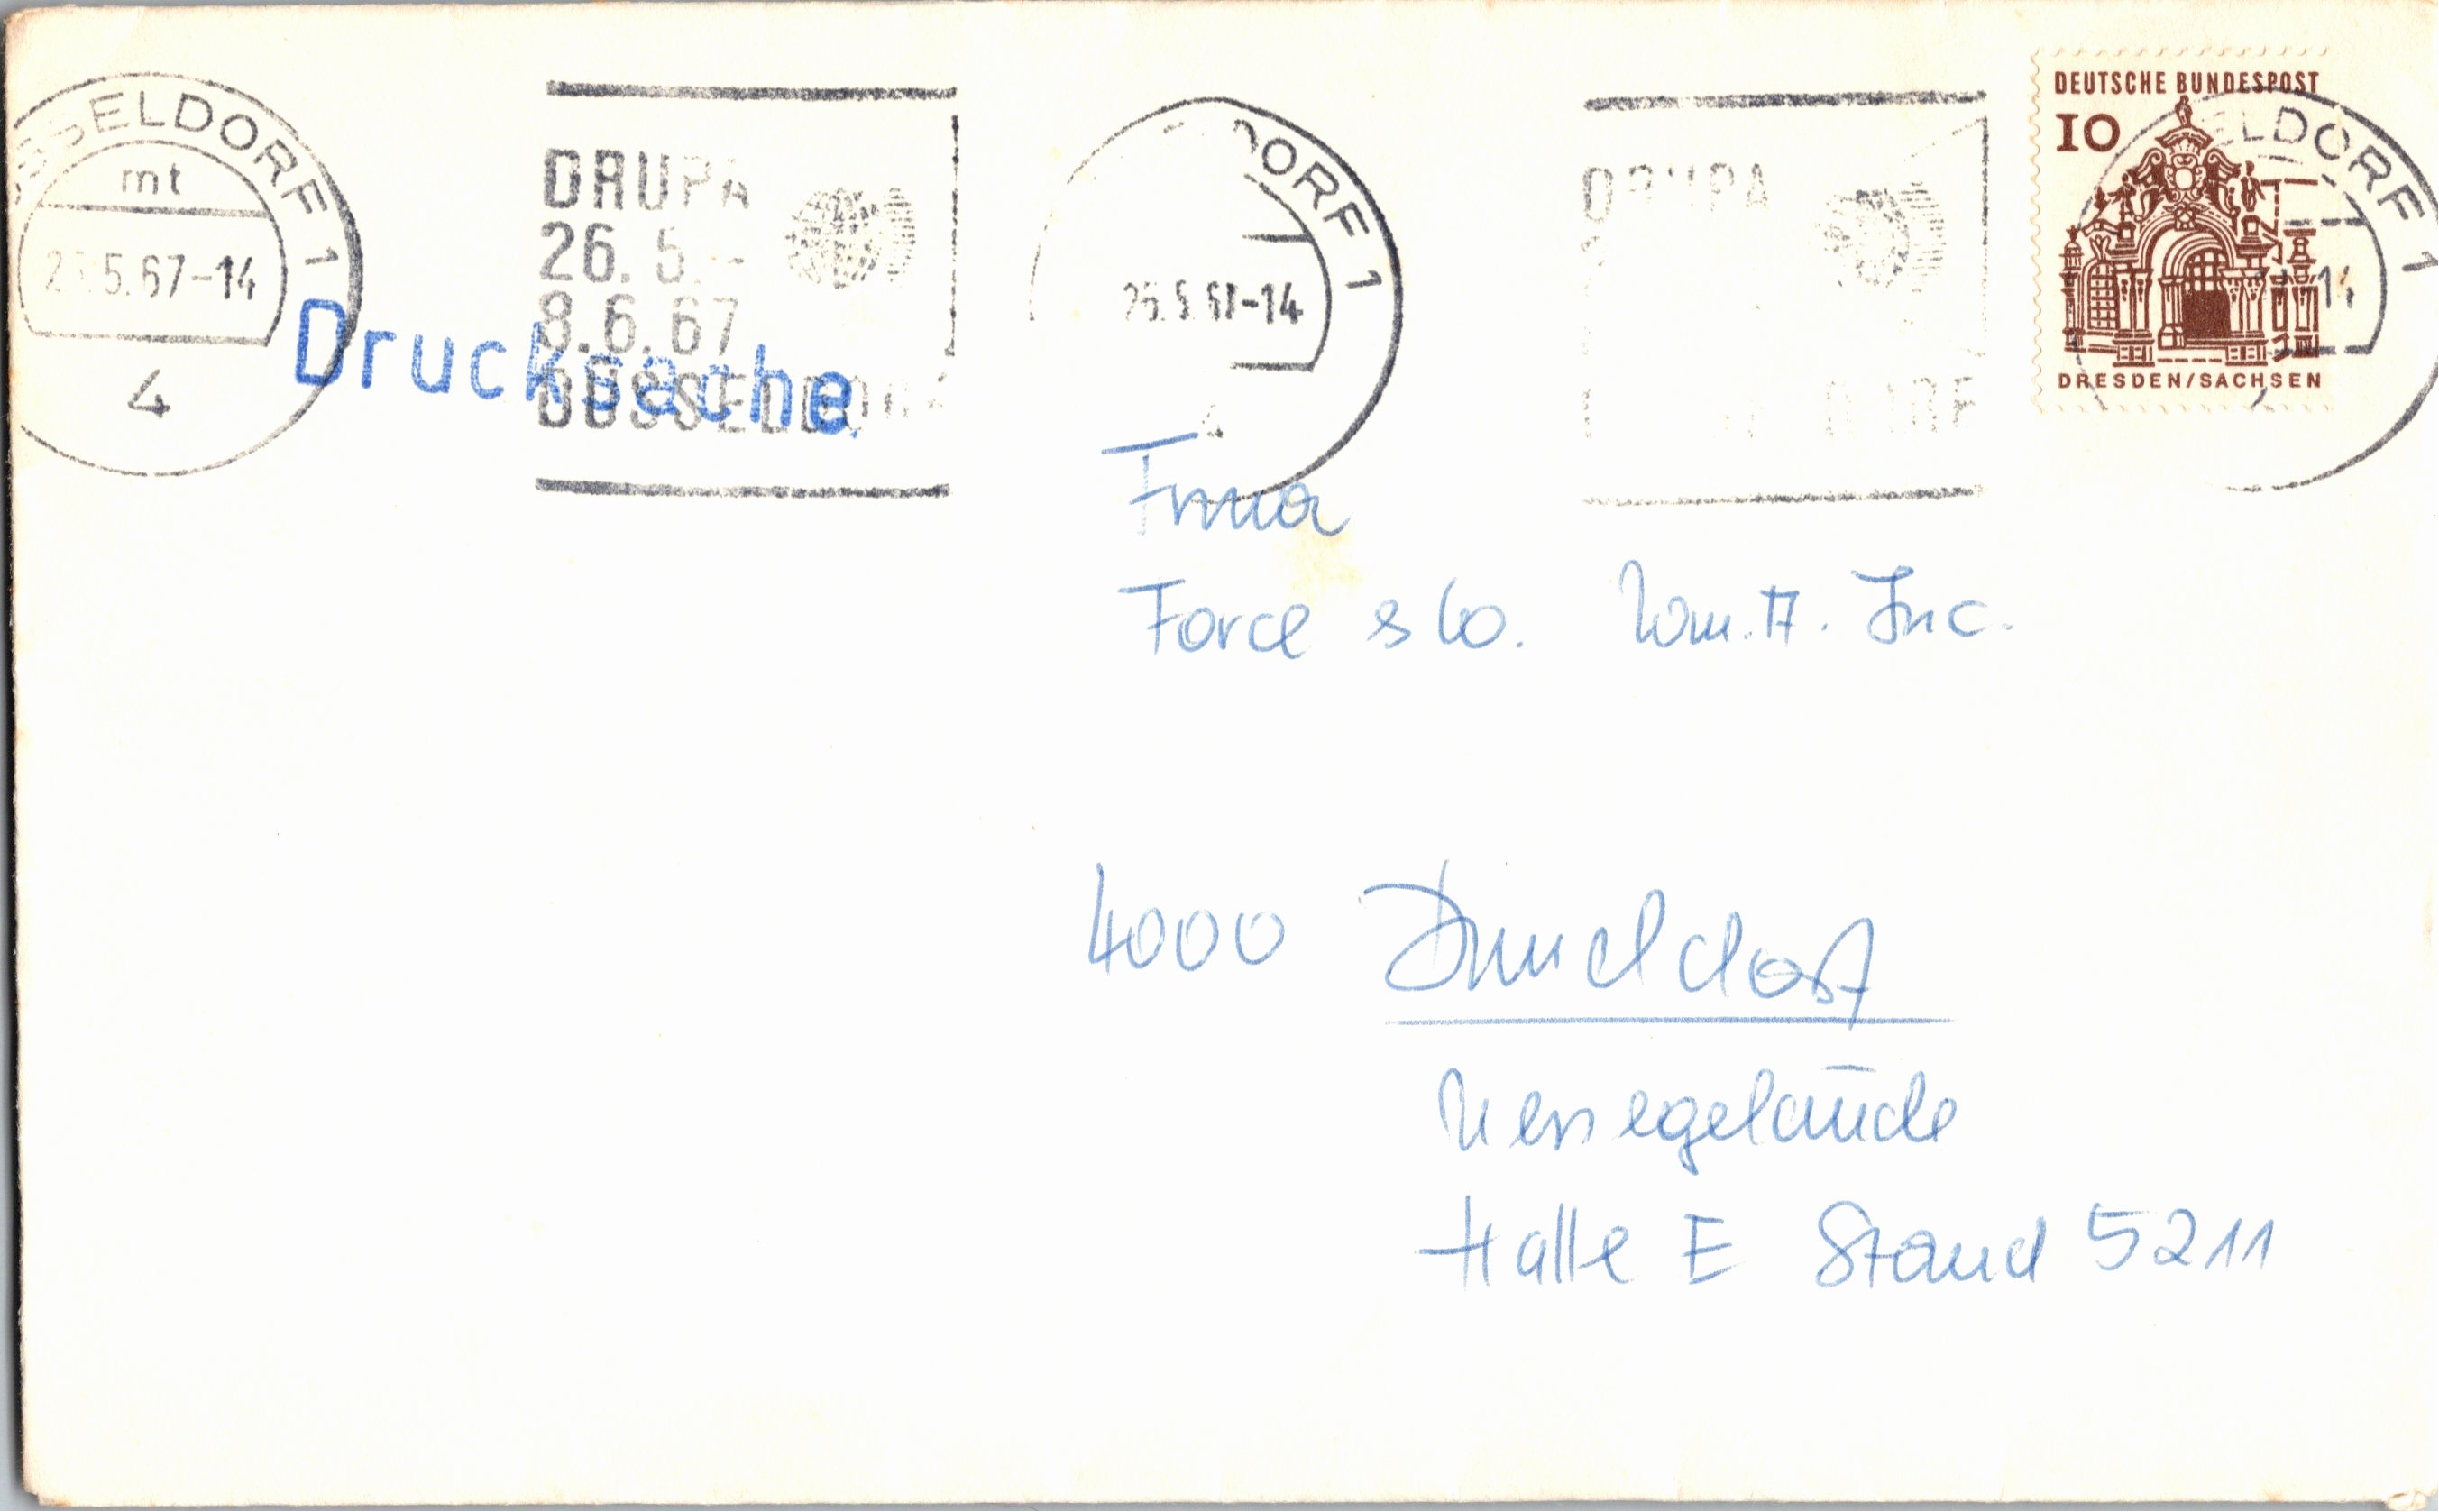 DEUTSCHE BUNDESPOST
10
DRESDEN/SACHSEN
SSELDORF 1
mt
5.67-14
4
DRUPA
26.5.-
8.6.67
DÜSSELDORF
Drucksache
DORF 1
26.5.67-14
4
DRUPA
ELDORF 1
14
Firma
Force & Co. Wm. A. Inc.
4000 Düsseldorf
Messegelände
Halle E Stand 5211